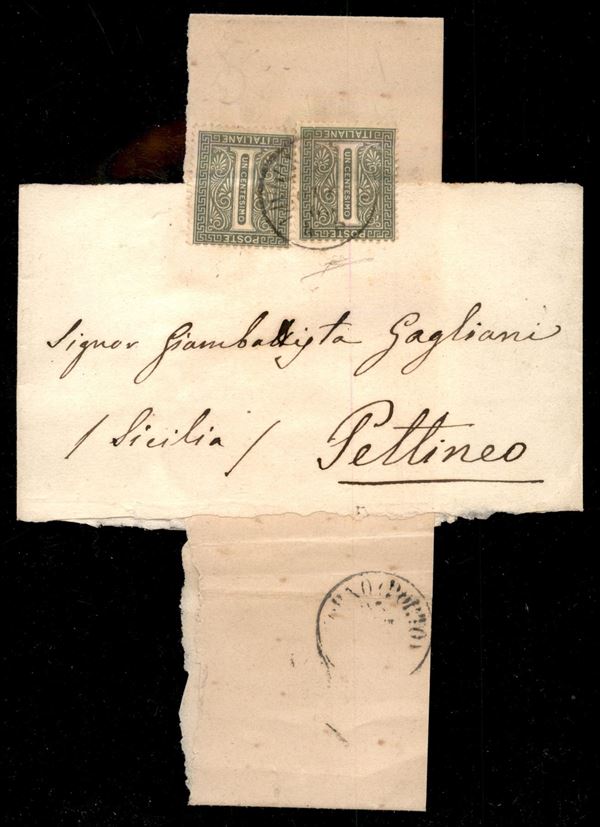 POSTE ITALIANE
UN CENTESIMO
POSTE ITALIANE
UN CENTESIMO
Signor Giambattista Gagliani
/ Sicilia / Pettineo